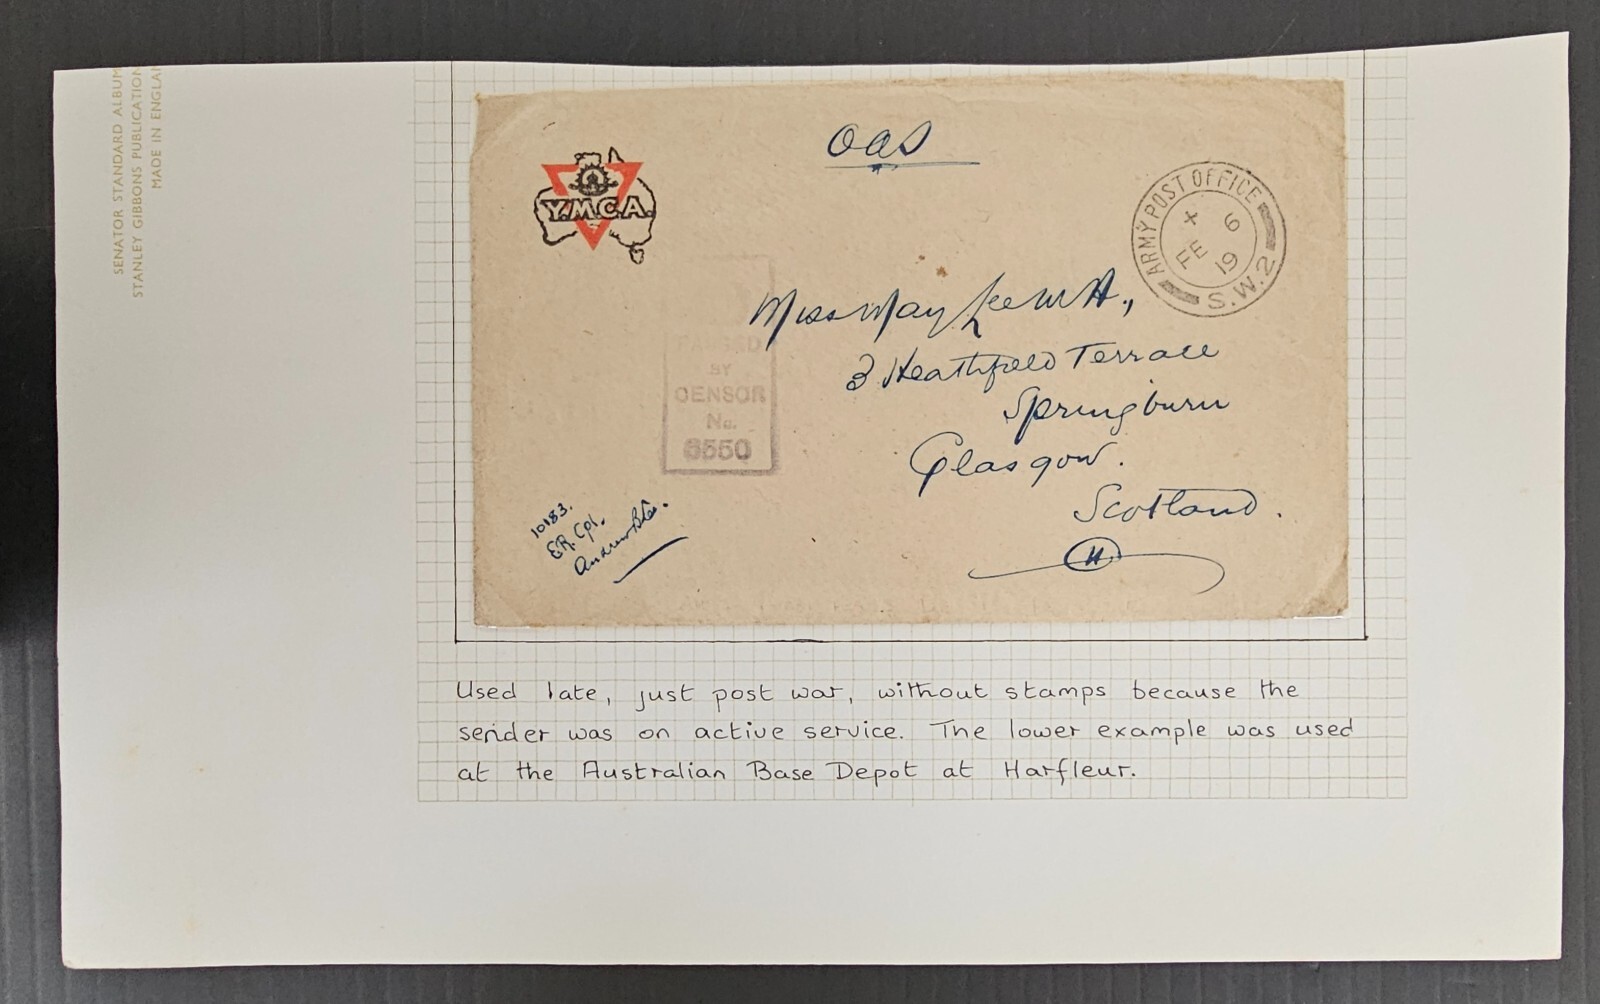 SENATOR STANDARD ALBUM
STANLEY GIBBONS PUBLICATION
MADE IN ENGLAN
OAS
Y.M.C.A.
ARMY POST OFFICE
X 6
FE 19
S.W.2
PASSED
BY
CENSOR
No.
6550
Miss May
3 Heathfield Terrace
Springburn
Glasgow.
Scotland.
H
10183.
E.R. Cpl.
Andrew
Used late, just post war, without stamps because the
sender was on active service. The lower example was used
at the Australian Base Depot at Harfleur.